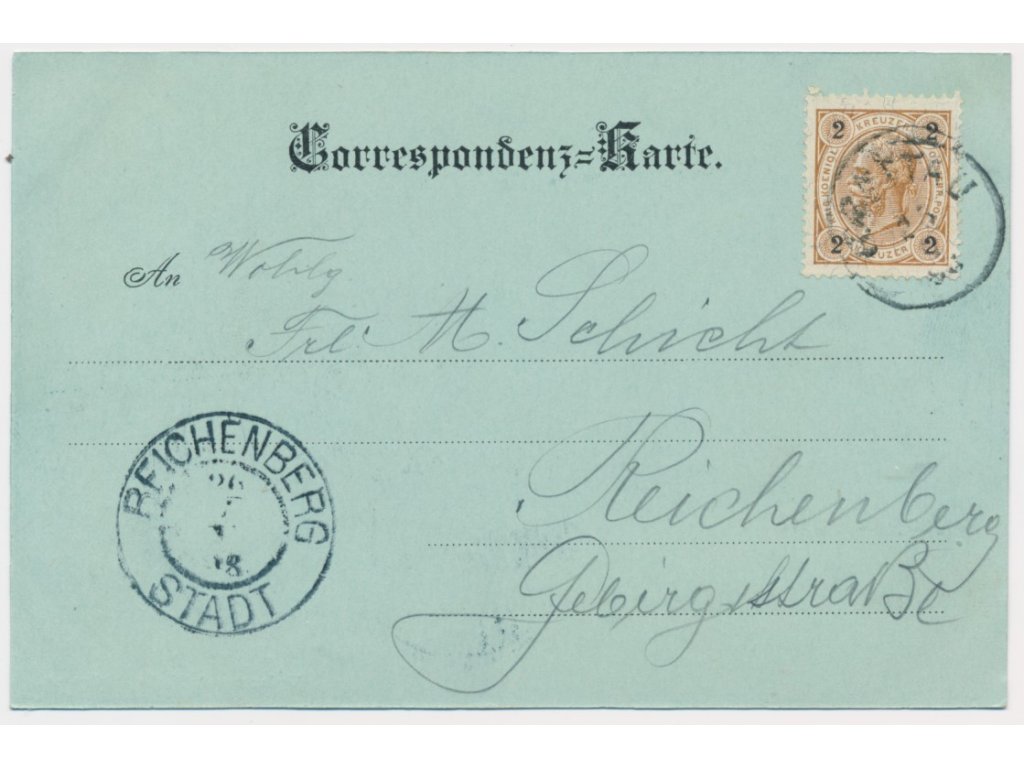 Correspondenz=Karte.
2 KREUZER 2
2 KREUZER 2
An Wohlg
Frl: M. Schicht
Reichenberg
Gebirgsstraße
REICHENBERG
26
98
STADT